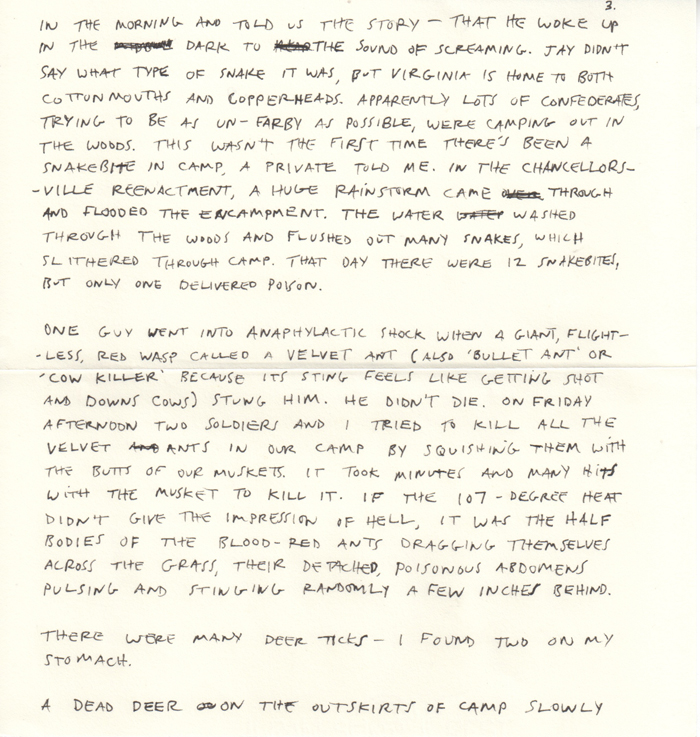 3.
IN THE MORNING AND TOLD US THE STORY — THAT HE WOKE UP
IN THE DARK TO THE SOUND OF SCREAMING. JAY DIDN'T
SAY WHAT TYPE OF SNAKE IT WAS, BUT VIRGINIA IS HOME TO BOTH
COTTONMOUTHS AND COPPERHEADS. APPARENTLY LOTS OF CONFEDERATES,
TRYING TO BE AS UN-FARBY AS POSSIBLE, WERE CAMPING OUT IN
THE WOODS. THIS WASN'T THE FIRST TIME THERE'S BEEN A
SNAKEBITE IN CAMP, A PRIVATE TOLD ME. IN THE CHANCELLORS-
-VILLE REENACTMENT, A HUGE RAINSTORM CAME THROUGH
AND FLOODED THE ENCAMPMENT. THE WATER WASHED
THROUGH THE WOODS AND FLUSHED OUT MANY SNAKES, WHICH
SLITHERED THROUGH CAMP. THAT DAY THERE WERE 12 SNAKEBITES,
BUT ONLY ONE DELIVERED POISON.
ONE GUY WENT INTO ANAPHYLACTIC SHOCK WHEN A GIANT, FLIGHT-
-LESS, RED WASP CALLED A VELVET ANT (ALSO 'BULLET ANT' OR
'COW KILLER' BECAUSE ITS STING FEELS LIKE GETTING SHOT
AND DOWNS COWS) STUNG HIM. HE DIDN'T DIE. ON FRIDAY
AFTERNOON TWO SOLDIERS AND I TRIED TO KILL ALL THE
VELVET ANTS IN OUR CAMP BY SQUISHING THEM WITH
THE BUTTS OF OUR MUSKETS. IT TOOK MINUTES AND MANY HITS
WITH THE MUSKET TO KILL IT. IF THE 107-DEGREE HEAT
DIDN'T GIVE THE IMPRESSION OF HELL, IT WAS THE HALF
BODIES OF THE BLOOD-RED ANTS DRAGGING THEMSELVES
ACROSS THE GRASS, THEIR DETACHED, POISONOUS ABDOMENS
PULSING AND STINGING RANDOMLY A FEW INCHES BEHIND.
THERE WERE MANY DEER TICKS — I FOUND TWO ON MY
STOMACH.
A DEAD DEER ON THE OUTSKIRTS OF CAMP SLOWLY